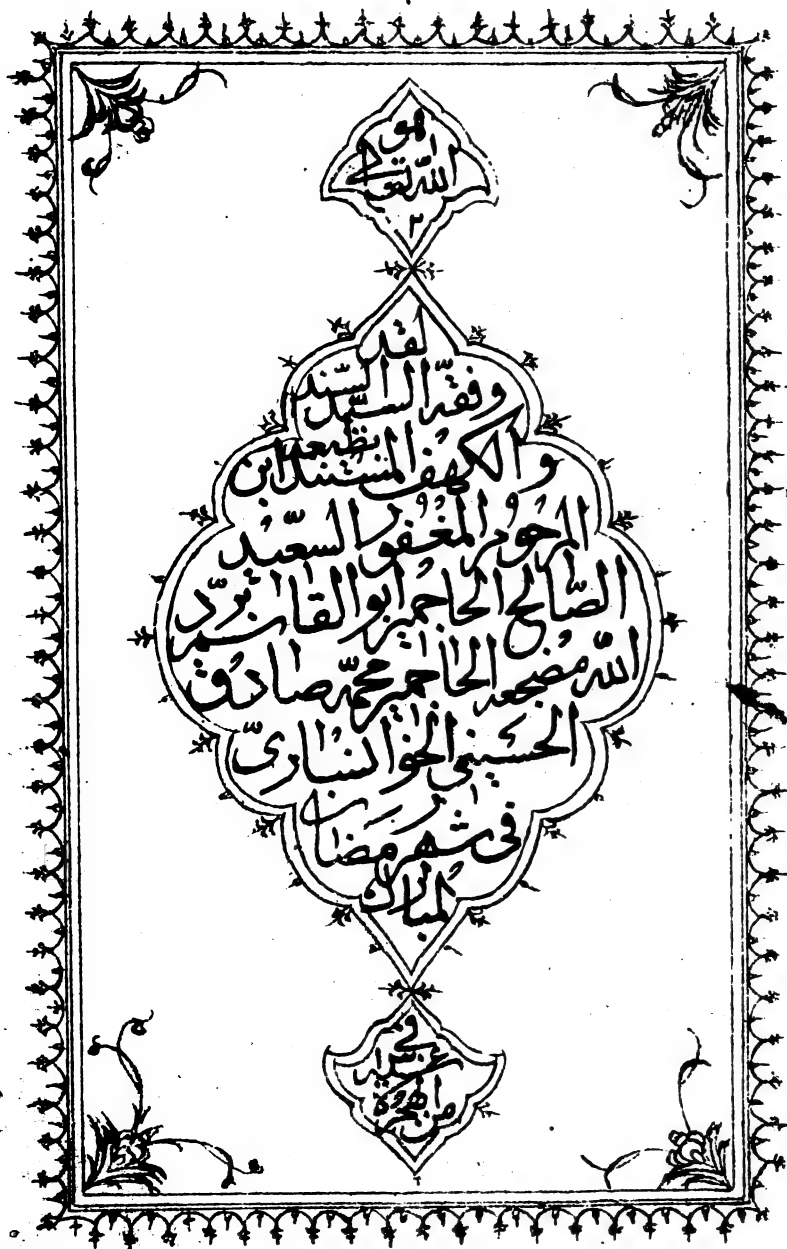 هو
الله تعالى
٢
لقد
وفقه السيّد السّند
بطبعه
والكهف المستند ابن
المرحوم المغفور السعيد
الصّالح الحاجمير ابو القاسم برّد
الله مضجعه الحاجمير محمّد صادق
الحسيني الخوانساريّ
في شهر رمضان
المبارك
في
من الهجرة